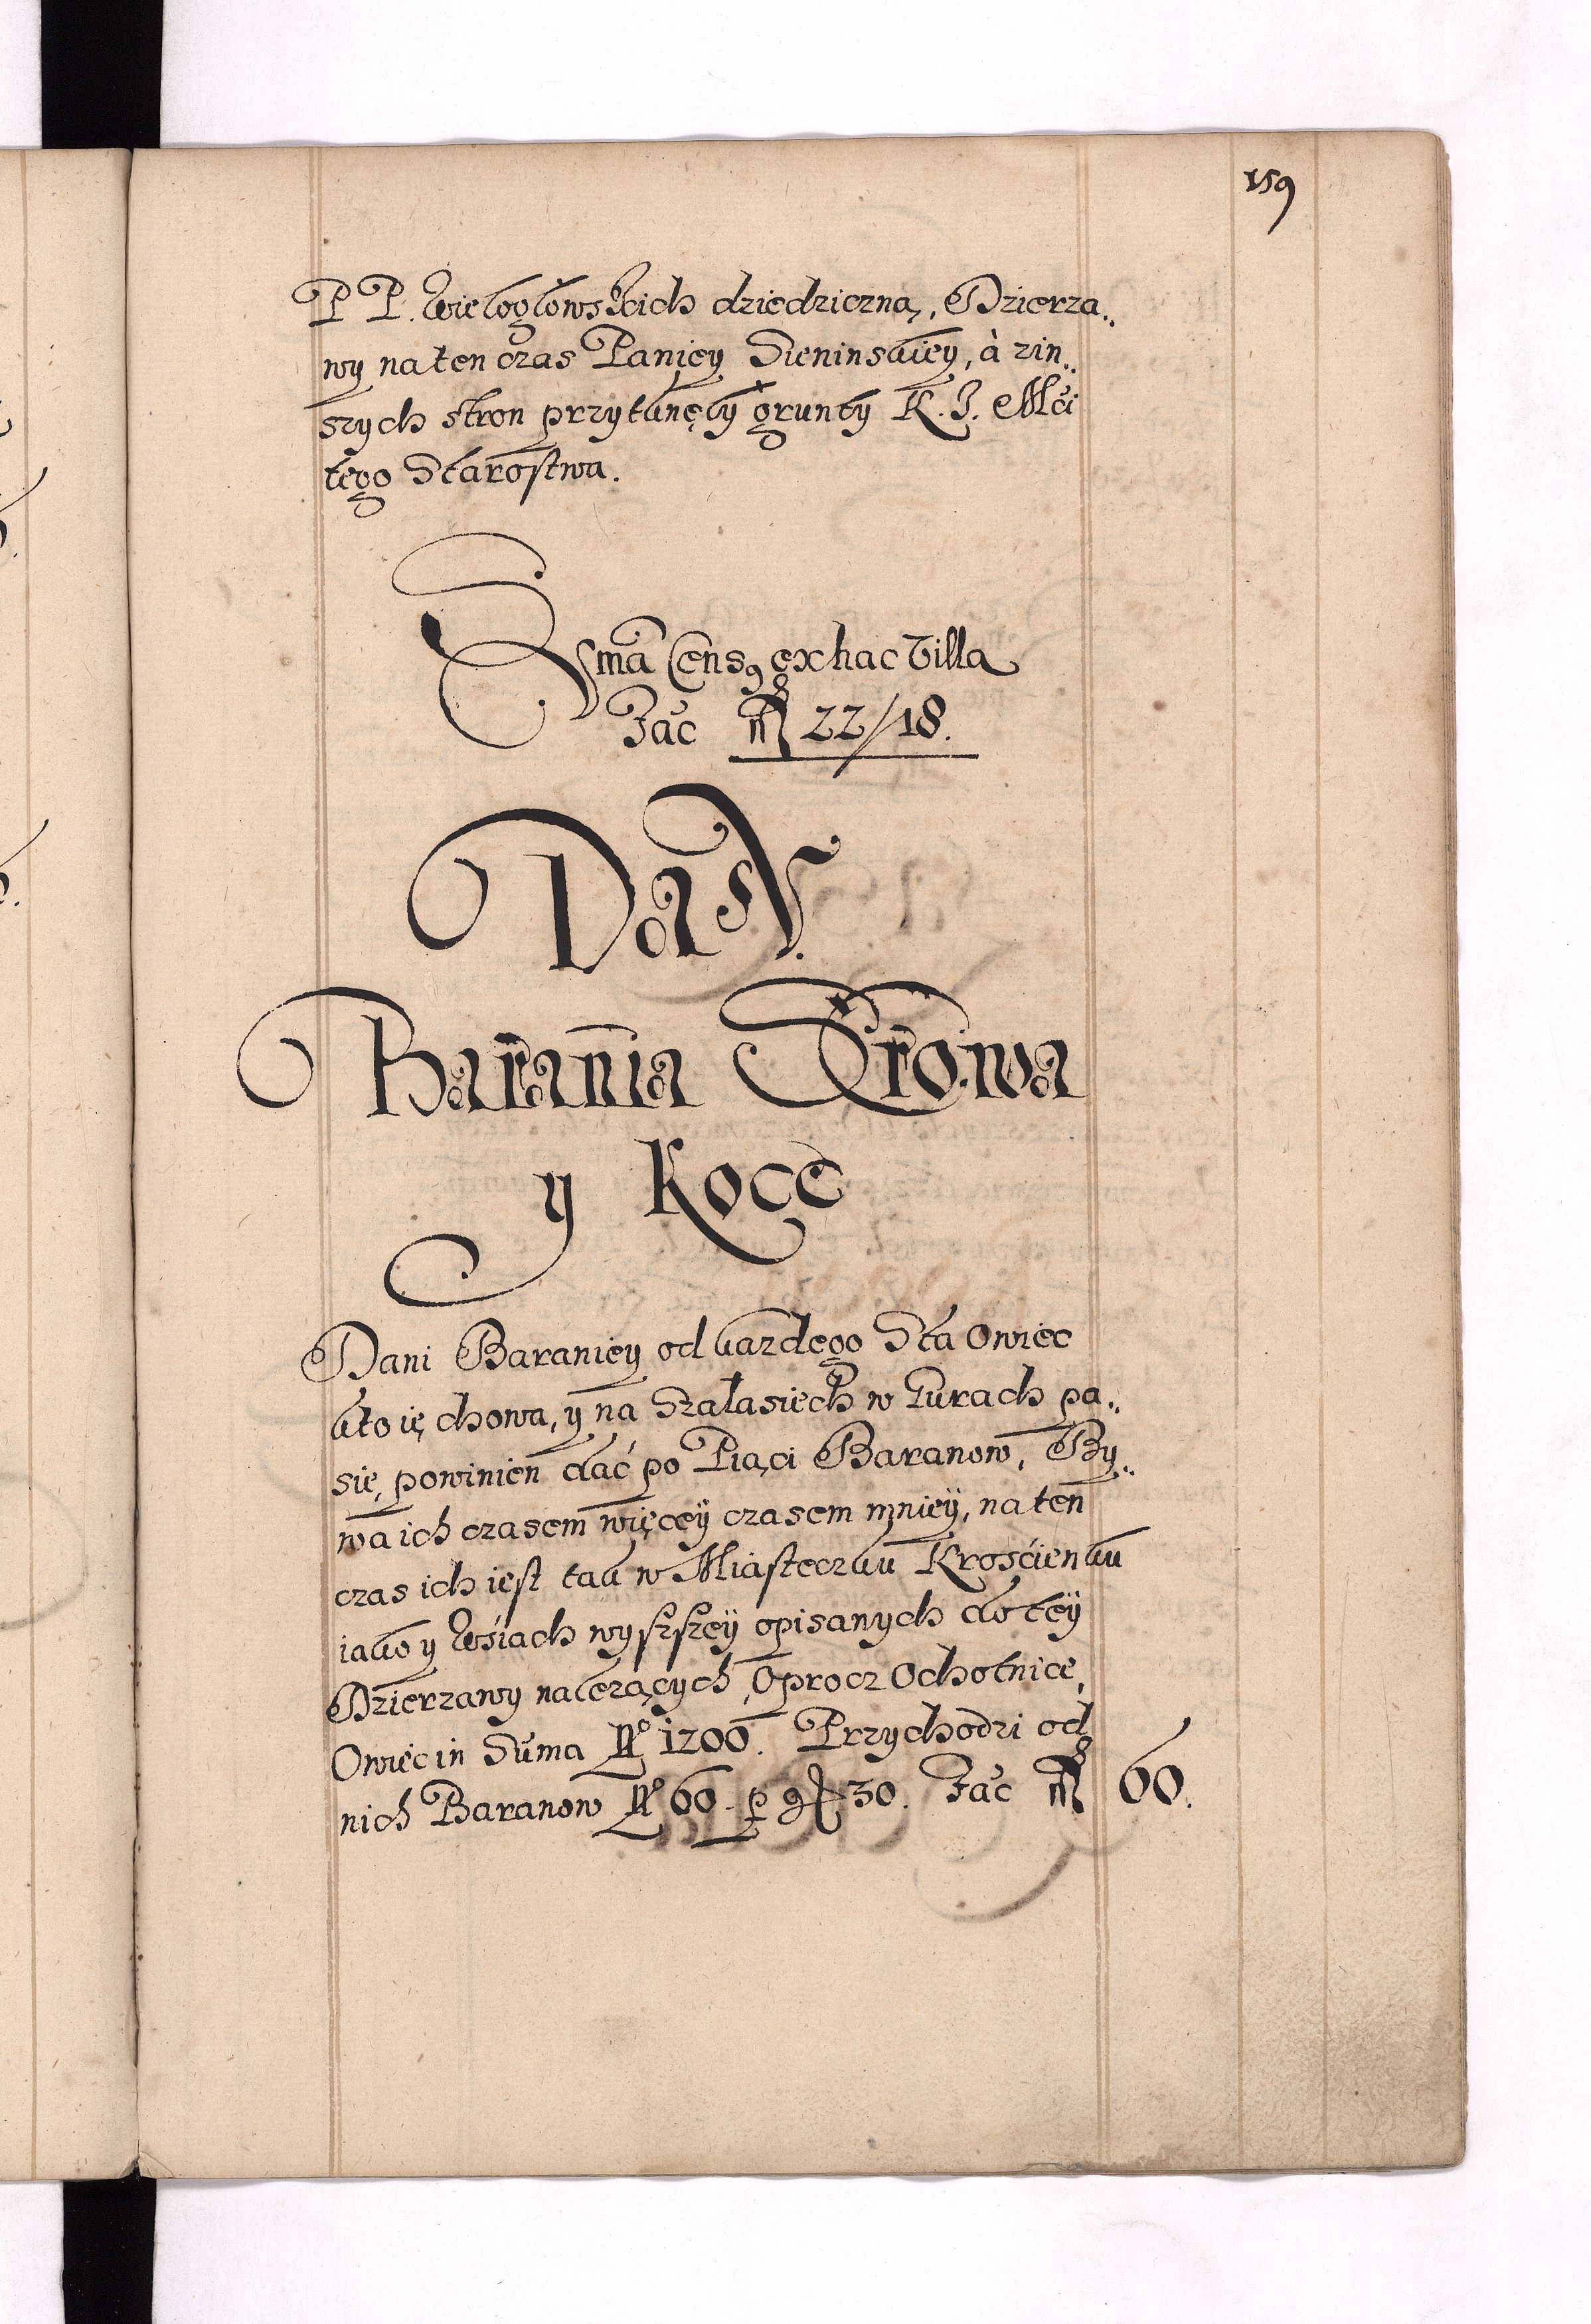 159
P P. Wielogłowskich dziedziczną, Dzierza„
wy na ten czas Paniey Sieninskiey, à z in„
szych stron przytknęły grunty K. J. Mći
tego Starostwa.
Sma Cens9 ex hac Villa
Fac fl 22/18.
Dań
Barania Sirowa
y Koce
Dani Baraniey od kazdego Sta Owiec
kto ię chowa, y na Szałasiech w Gurach pa„
sie, powinien dać po Piąci Baranow, By„
wa ich czasem więcey czasem mniey, na ten
czas ich iest tak w Miasteczku Krośćienku
iako y Wśiach wyszszey opisanych do tey
Dzierzawy nalezących, Oprocz Ochotnice,
Owiec in Suma No 1200. Przychodzi od
nich Baranow No 60. p gr 30. Fac fl 60.